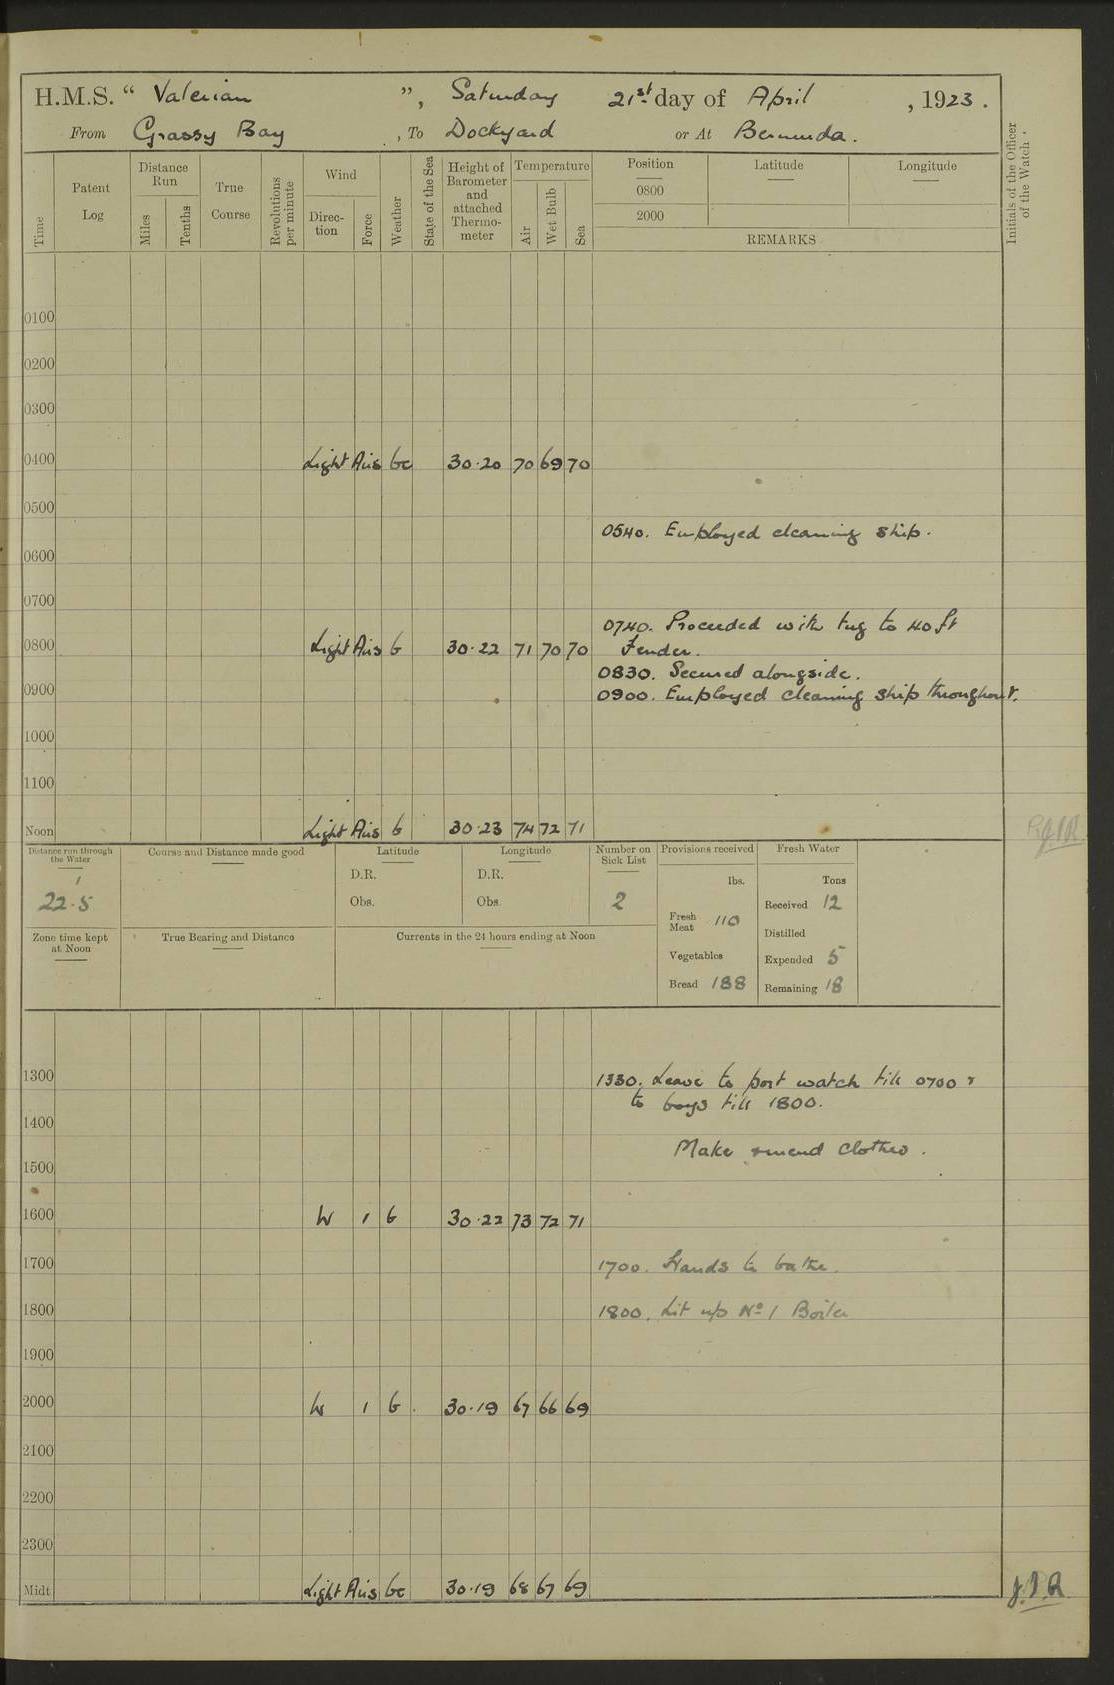 H.M.S. “ Valerian ”, Saturday 21st day of April , 1923.
From Grassy Bay , To Dockyard or At Bermuda.
Time
Patent Log
Distance Run
Miles
Tenths
True Course
Revolutions per minute
Wind
Direction
Force
Weather
State of the Sea
Height of Barometer and attached Thermometer
Temperature
Air
Wet Bulb
Sea
Position
0800
2000
Latitude
Longitude
REMARKS
Initials of the Officer of the Watch.
0100
0200
0300
0400 Light Airs bc 30.20 70 69 70
0500
0540. Employed cleaning ship.
0600
0700
0740. Proceeded with tug to 40 ft
0800 Light Airs b 30.22 71 70 70 Fender.
0830. Secured alongside.
0900 0900. Employed cleaning ship throughout.
1000
1100
Noon Light Airs b 30.23 74 72 71
Distance run through the Water
22.5
Zone time kept at Noon
Course and Distance made good
True Bearing and Distance
Latitude
D.R.
Obs.
Longitude
D.R.
Obs.
Currents in the 24 hours ending at Noon
Number on Sick List
2
Provisions received
lbs.
Fresh Meat 110
Vegetables
Bread 188
Fresh Water
Tons
Received 12
Distilled
Expended 5
Remaining 18
1300 1330. Leave to port watch till 0700 &
to boys till 1800.
1400
Make & mend clothes.
1500
1600 W 1 b 30.22 73 72 71
1700 1700. Hands to bathe.
1800 1800. Lit up No 1 Boiler
1900
2000 W 1 b 30.19 67 66 69
2100
2200
2300
Midt Light Airs bc 30.19 68 67 69 J.P.R.